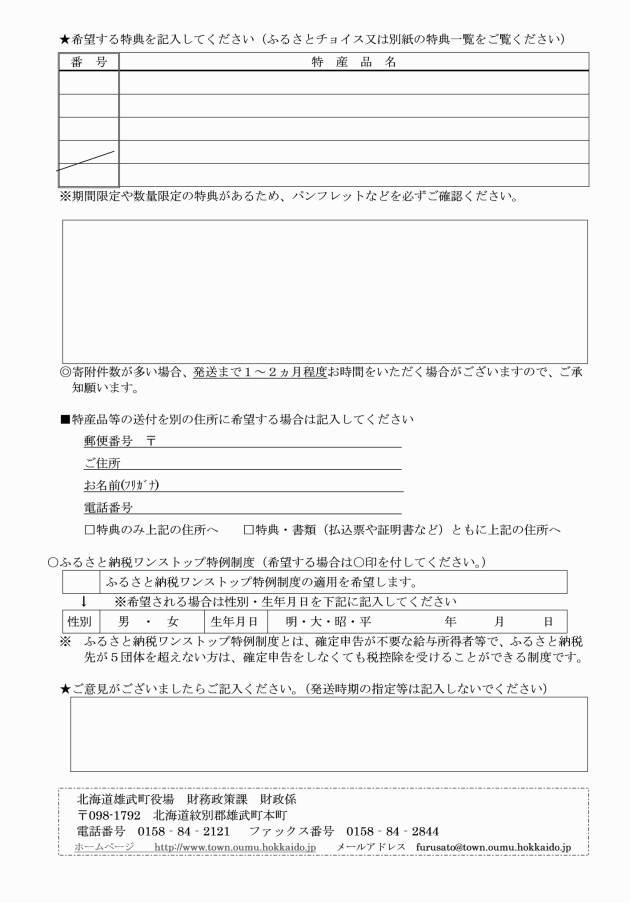 ★希望する特典を記入してください（ふるさとチョイス又は別紙の特典一覧をご覧ください）
番　号　特　産　品　名
※期間限定や数量限定の特典があるため、パンフレットなどを必ずご確認ください。
◎寄附件数が多い場合、発送まで１～２ヵ月程度お時間をいただく場合がございますので、ご承
知願います。
■特産品等の送付を別の住所に希望する場合は記入してください
郵便番号　〒
ご住所
お名前(ﾌﾘｶﾞﾅ)
電話番号
□特典のみ上記の住所へ　　□特典・書類（払込票や証明書など）ともに上記の住所へ
〇ふるさと納税ワンストップ特例制度（希望する場合は〇印を付してください。）
ふるさと納税ワンストップ特例制度の適用を希望します。
↓　　※希望される場合は性別・生年月日を下記に記入してください
性別　男　・　女　生年月日　明・大・昭・平　　　年　　　月　　　日
※　ふるさと納税ワンストップ特例制度とは、確定申告が不要な給与所得者等で、ふるさと納税
先が５団体を超えない方は、確定申告をしなくても税控除を受けることができる制度です。
★ご意見がございましたらご記入ください。（発送時期の指定等は記入しないでください）
北海道雄武町役場　財務政策課　財政係
〒098-1792　北海道紋別郡雄武町本町
電話番号　0158‐84‐2121　ファックス番号　0158‐84‐2844
ホームページ　http://www.town.oumu.hokkaido.jp　メールアドレス　furusato@town.oumu.hokkaido.jp